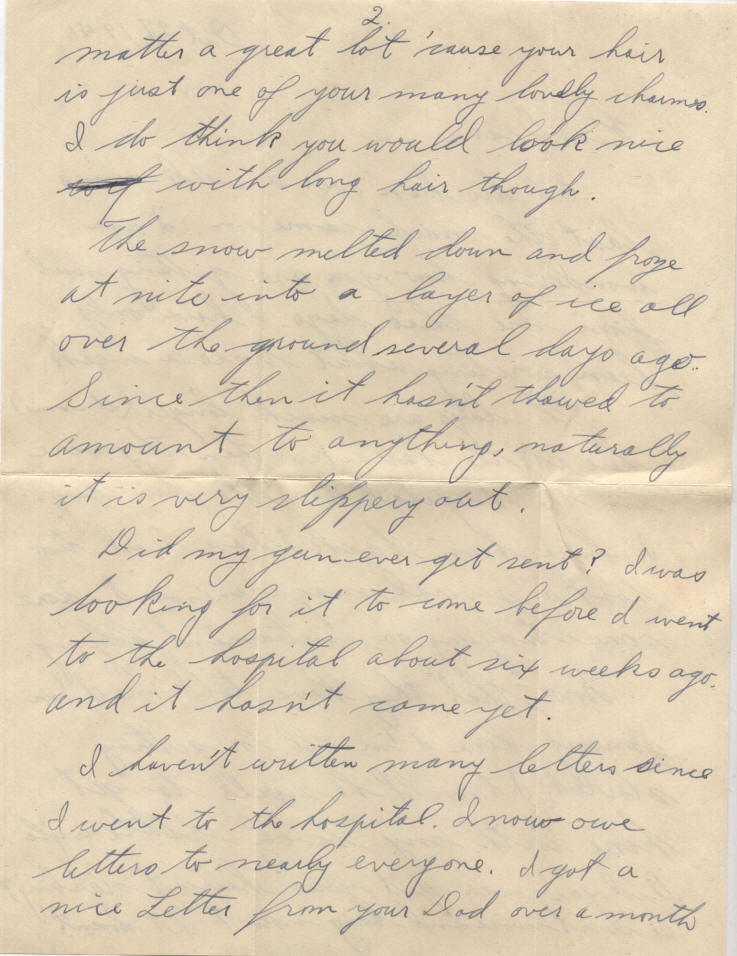 2.
matter a great lot 'cause your hair
is just one of your many lovely charms.
I do think you would look nice
with long hair though.
The snow melted down and froze
at nite into a layer of ice all
over the ground several days ago.
Since then it hasn't thawed to
amount to anything, naturally
it is very slippery out.
Did my gun ever get sent? I was
looking for it to come before I went
to the hospital about six weeks ago.
and it hasn't came yet.
I haven't written many letters since
I went to the hospital. I now owe
letters to nearly everyone. I got a
nice Letter from your Dad over a month